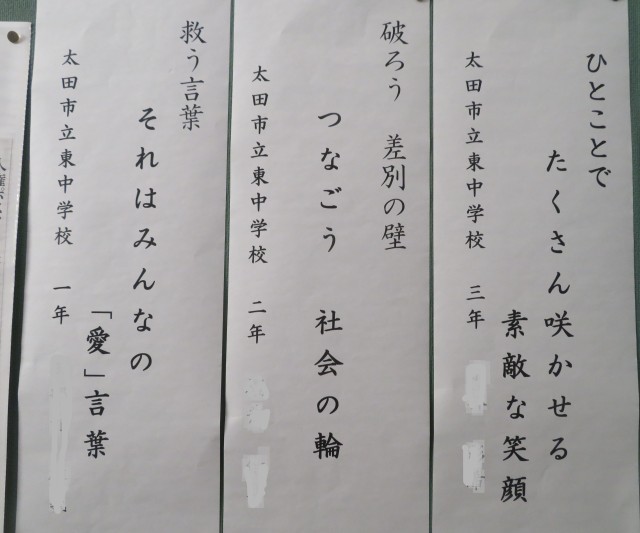 ひとことで
たくさん咲かせる
素敵な笑顔
太田市立東中学校 三年
破ろう 差別の壁
つなごう 社会の輪
太田市立東中学校 二年
救う言葉
それはみんなの
「愛」言葉
太田市立東中学校 一年